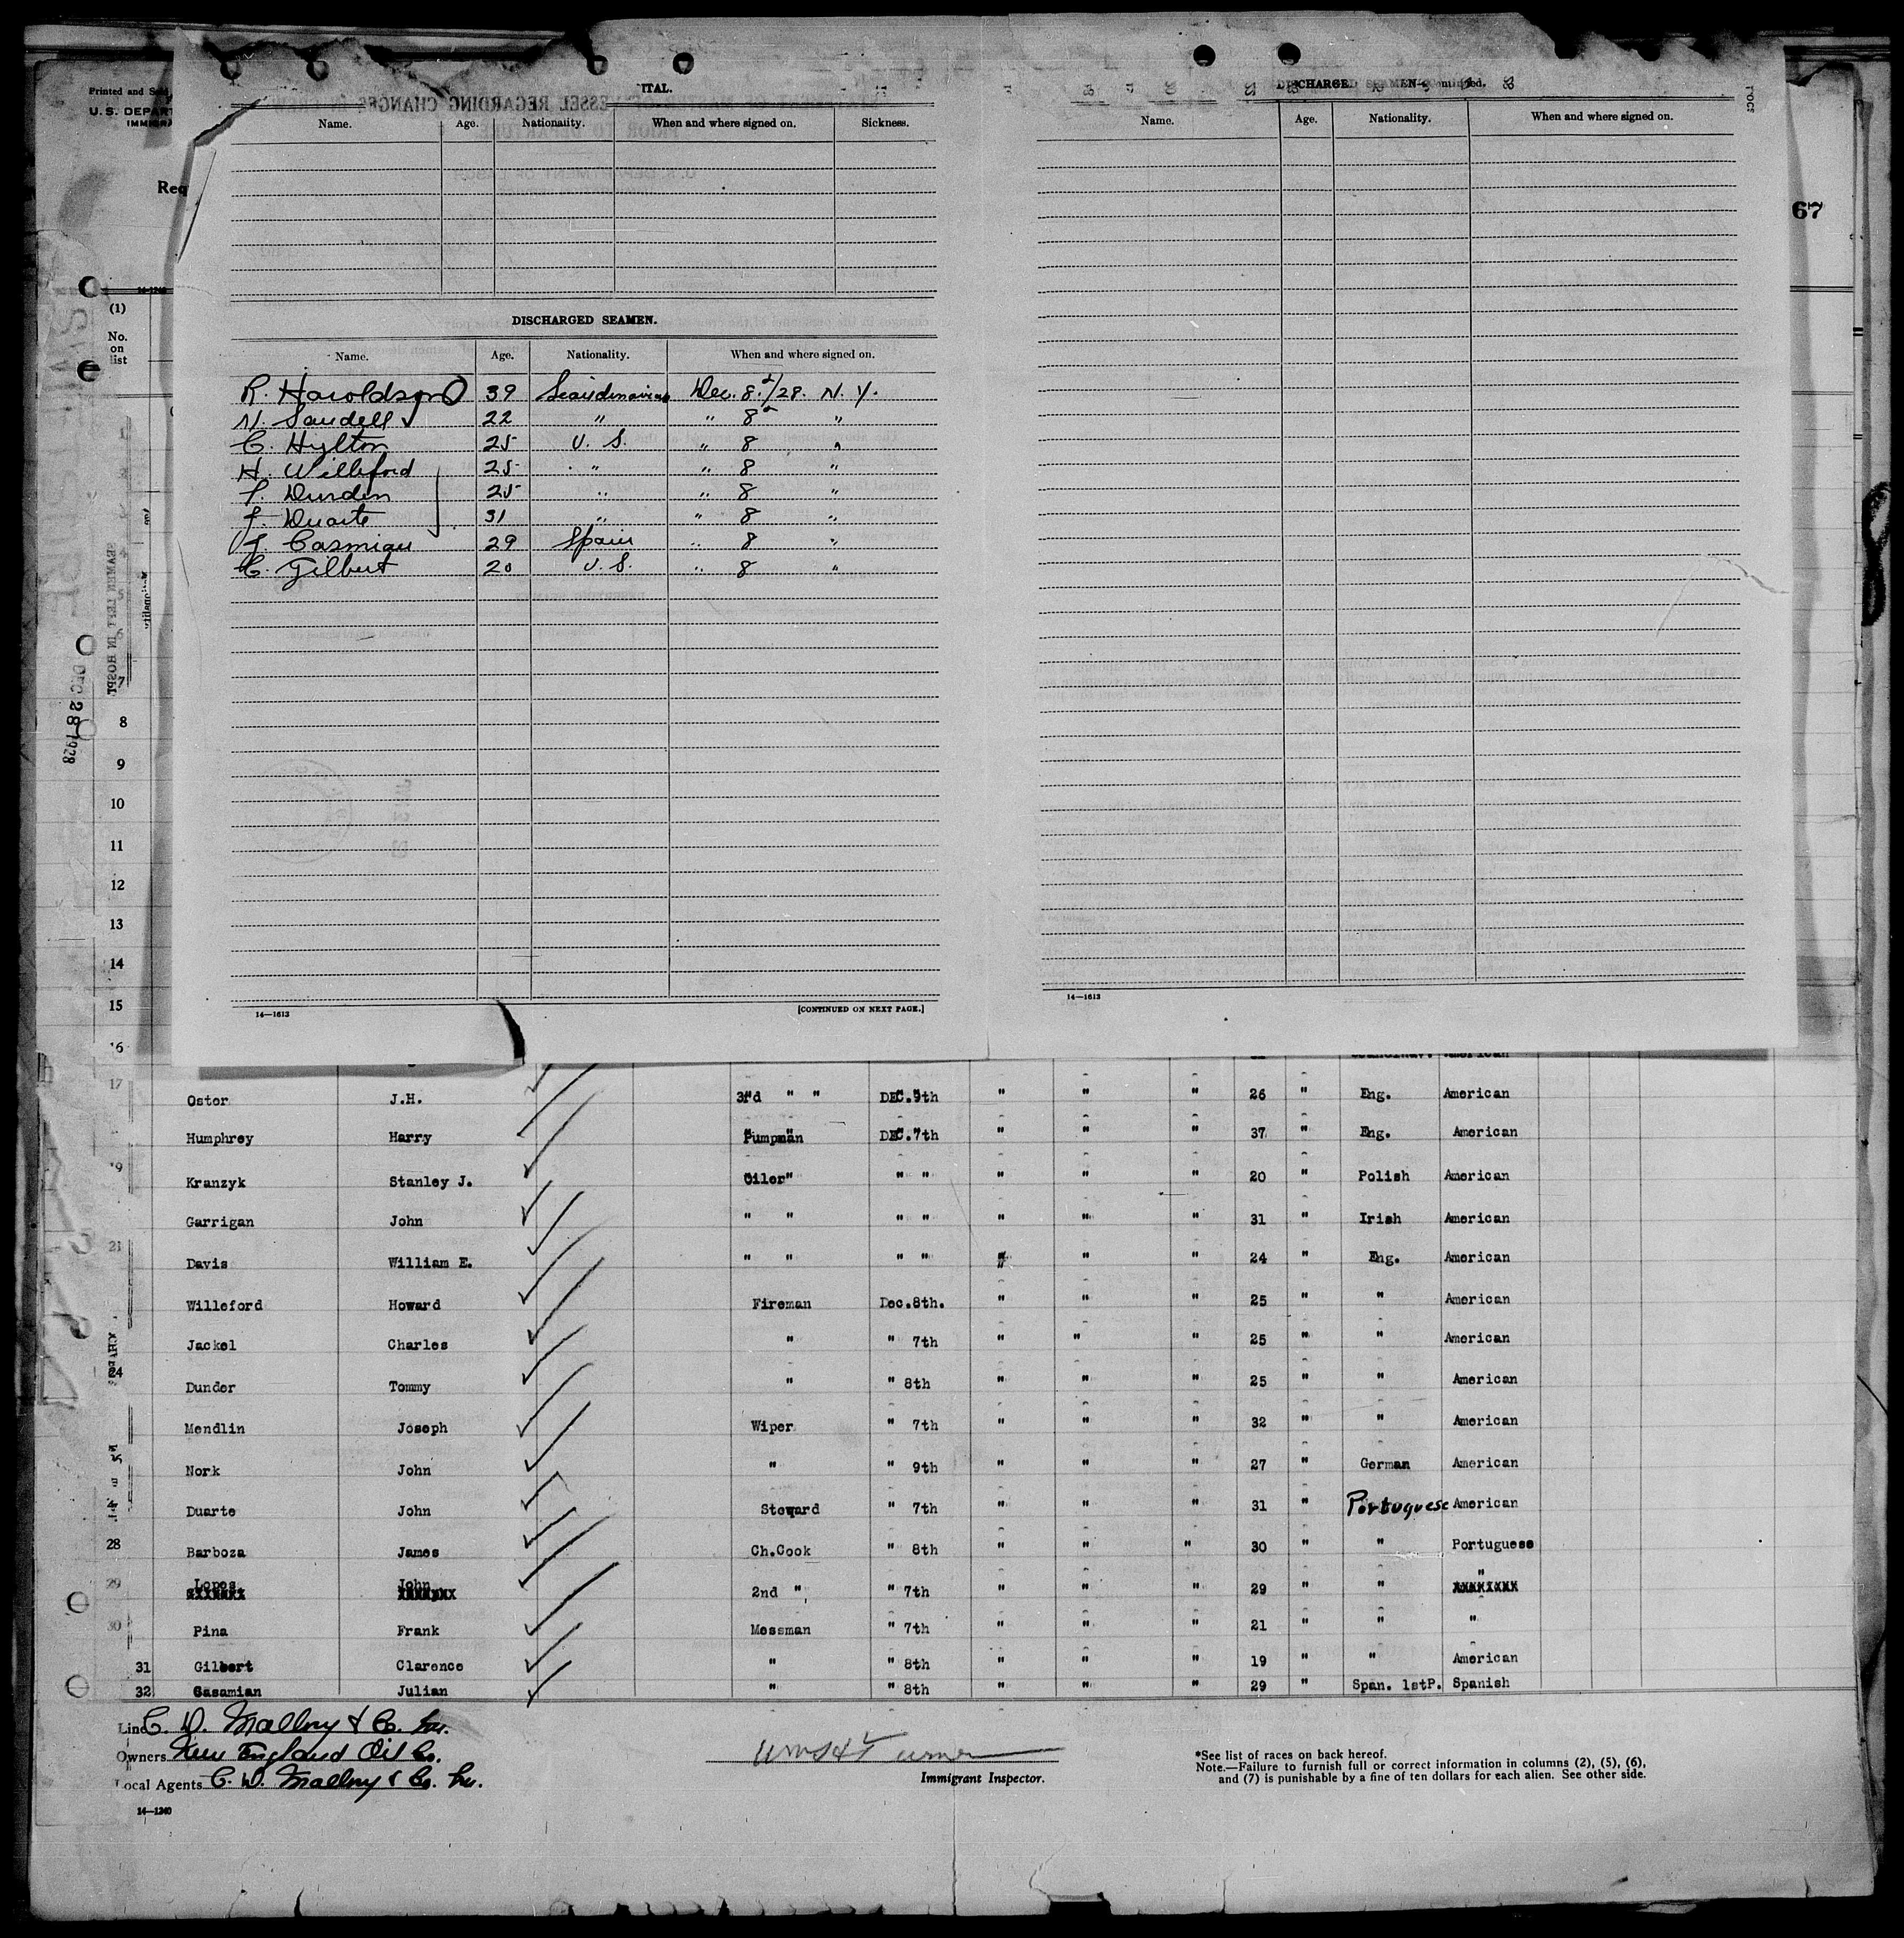 Printed and Sold
U.S. DEPART
IMMIGRA
Req
67
14-1240
(1)
No.
on
list
ITAL.
Name. Age. Nationality. When and where signed on. Sickness.
DISCHARGED SEAMEN.
Name. Age. Nationality. When and where signed on.
R. Haroldson 39 Scandinavian Dec. 8/28. N. Y.
N. Sandell 22 " " 8 "
C. Hylton 25 U. S. " 8 "
H. Willeford 25 " " 8 "
T. Durden 25 " " 8 "
J. Duarte 31 " " 8 "
J. Casmian 29 Spain " 8 "
C. Gilbert 20 U. S. " 8 "
14—1613 [CONTINUED ON NEXT PAGE.]
DISCHARGED SEAMEN—Continued.
Name. Age. Nationality. When and where signed on.
14—1613
DEC 28 1928
SEAMEN LEFT IN HOSPI
7
8
9
10
11
12
13
14
15
16
17
Oster J.H. 3rd " " DEC. 9th " " " 26 " Eng. American
Humphrey Harry Pumpman DEC. 7th " " " 37 " Eng. American
19
Kranzyk Stanley J. Oiler" " " " " " 20 " Polish American
Garrigan John " " " " " " " 31 " Irish American
21
Davis William E. " " " " " " " 24 " Eng. American
Willeford Howard Fireman Dec.8th. " " " 25 " " American
Jackel Charles " " 7th " " " 25 " " American
24
Dunder Tommy " " 8th " " " 25 " " American
Mendlin Joseph Wiper " 7th " " " 32 " " American
Nork John " " 9th " " " 27 " German American
Duarte John Steward " 7th " " " 31 " Portuguese American
28 Barboza James Ch.Cook " 8th " " " 30 " " Portuguese
29 Lopes John 2nd " " 7th " " " 29 " " "
30 Pina Frank Messman " 7th " " " 21 " " "
31 Gilbert Clarence " " 8th " " " 19 " " American
32 Casamian Julian " " 8th " " " 29 " Span. 1stP. Spanish
Line C. D. Mallory & Co. Inc.
Owners New England Oil Co.
Local Agents C. D. Mallory & Co. Inc.
14—1240
Immigrant Inspector.
*See list of races on back hereof.
Note.—Failure to furnish full or correct information in columns (2), (5), (6),
and (7) is punishable by a fine of ten dollars for each alien. See other side.